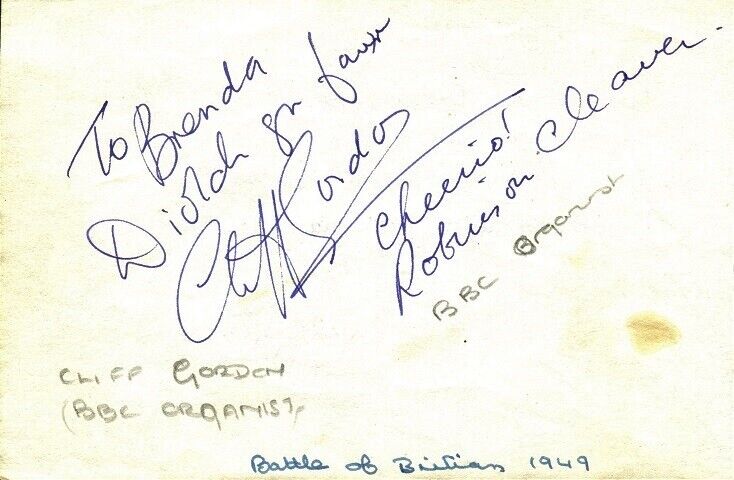 To Brenda
Diolch yn fawr
Cliff Gordon
Cheerio!
Robinson Cleaver.
BBC Organist
CLIFF GORDON
(BBC ORGANIST)
Battle of Britian 1949